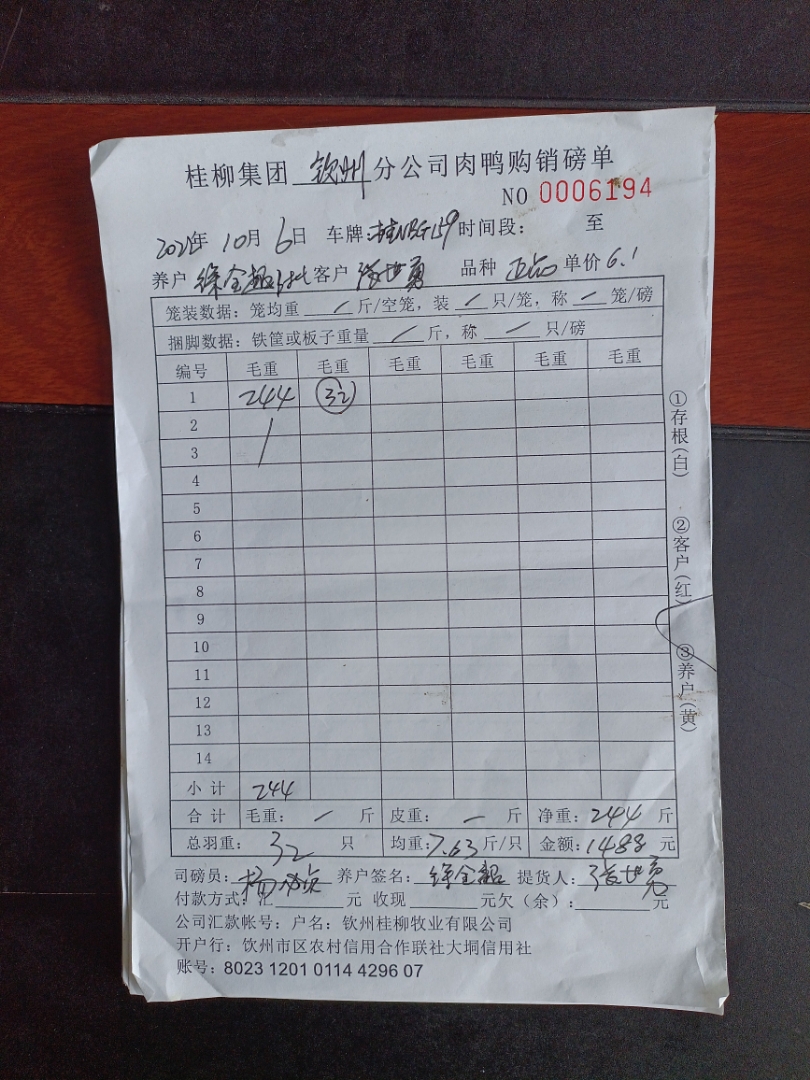 桂柳集团 钦州 分公司肉鸭购销磅单
NO 0006194
年 10月 6日 车牌: 时间段: 至
养户 徐全超 客户 张世勇 品种 正品 单价 6.1
笼装数据: 笼均重 / 斤/空笼, 装 / 只/笼, 称 一 笼/磅
捆脚数据: 铁筐或板子重量 / 斤, 称 一 只/磅
编号 毛重 毛重 毛重 毛重 毛重 毛重
1 244 32
2
3
4
5
6
7
8
9
10
11
12
13
14
小计 244
合计 毛重: 一 斤 皮重: 一 斤 净重: 244 斤
总羽重: 32 只 均重: 7.63 斤/只 金额: 1488 元
司磅员: 养户签名: 徐全超 提货人: 张世勇
付款方式: 汇 元 收现 元欠(余): 元
公司汇款帐号: 户名: 钦州桂柳牧业有限公司
开户行: 钦州市区农村信用合作联社大垌信用社
账号: 8023 1201 0114 4296 07
①存根(白) ②客户(红) ③养户(黄)